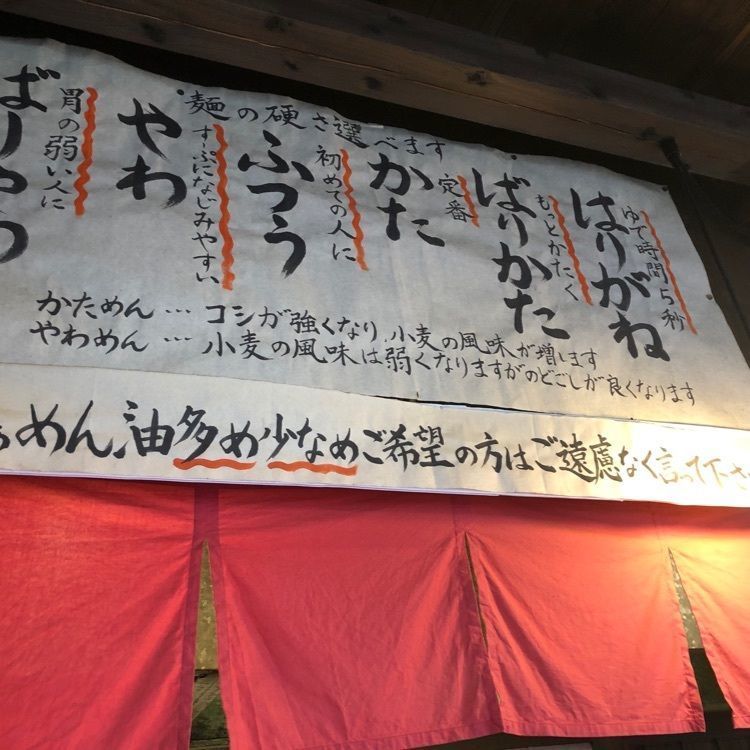 麺の硬さ選べます
はりがね
ゆで時間5秒
ばりかた
もっとかたく
かた
定番
ふつう
初めての人に
やわ
すーぷになじみやすい
ばりやわ
胃の弱い人に
かためん…コシが強くなり、小麦の風味が増します
やわめん…小麦の風味は弱くなりますがのどごしが良くなります
めん、油多め少なめご希望の方はご遠慮なく言って下さ